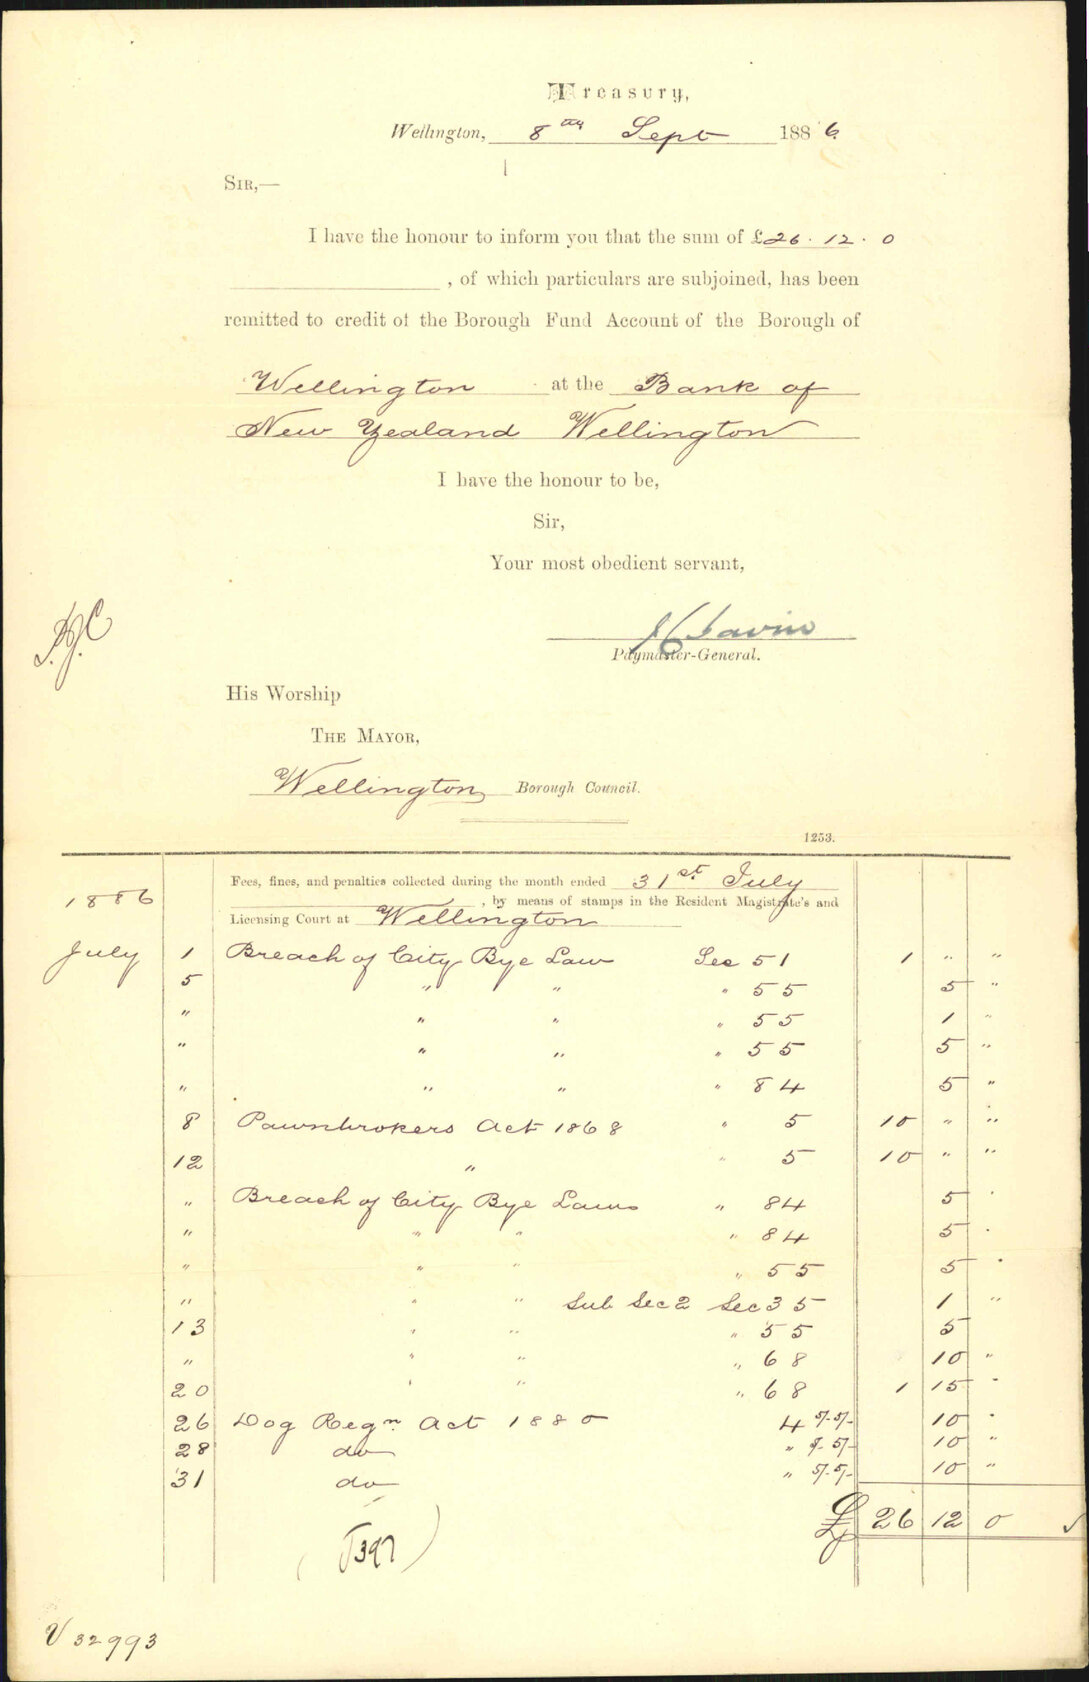 Treasury,
Wellington, 8th Sept 1886
SIR,—
I have the honour to inform you that the sum of £26.12.0
, of which particulars are subjoined, has been
remitted to credit of the Borough Fund Account of the Borough of
Wellington at the Bank of
New Zealand Wellington
I have the honour to be,
Sir,
Your most obedient servant,
Paymaster-General.
His Worship
THE MAYOR,
Wellington Borough Council.
1253.
Fees, fines, and penalties collected during the month ended 31st July
1886 , by means of stamps in the Resident Magistrate's and
Licensing Court at Wellington
July 1 Breach of City Bye Law Sec 51 1 " "
5 " " " 55 5 "
" " " " 55 1 "
" " " " 55 5 "
" " " " 84 5 "
8 Pawnbrokers Act 1868 " 5 10 " "
12 " " 5 10 " "
" Breach of City Bye Laws " 84 5 "
" " " " 84 5 "
" " " " 55 5 "
" " " Sub Sec 2 Sec 35 1 "
13 " " " 55 5
" " " " 68 10 "
20 " " " 68 1 15 "
26 Dog Regn Act 1880 4 5/- 5/- 10 "
28 do " 5/- 5/- 10 "
31 do " 5/- 5/- 10 "
£ 26 12 0
V 32993